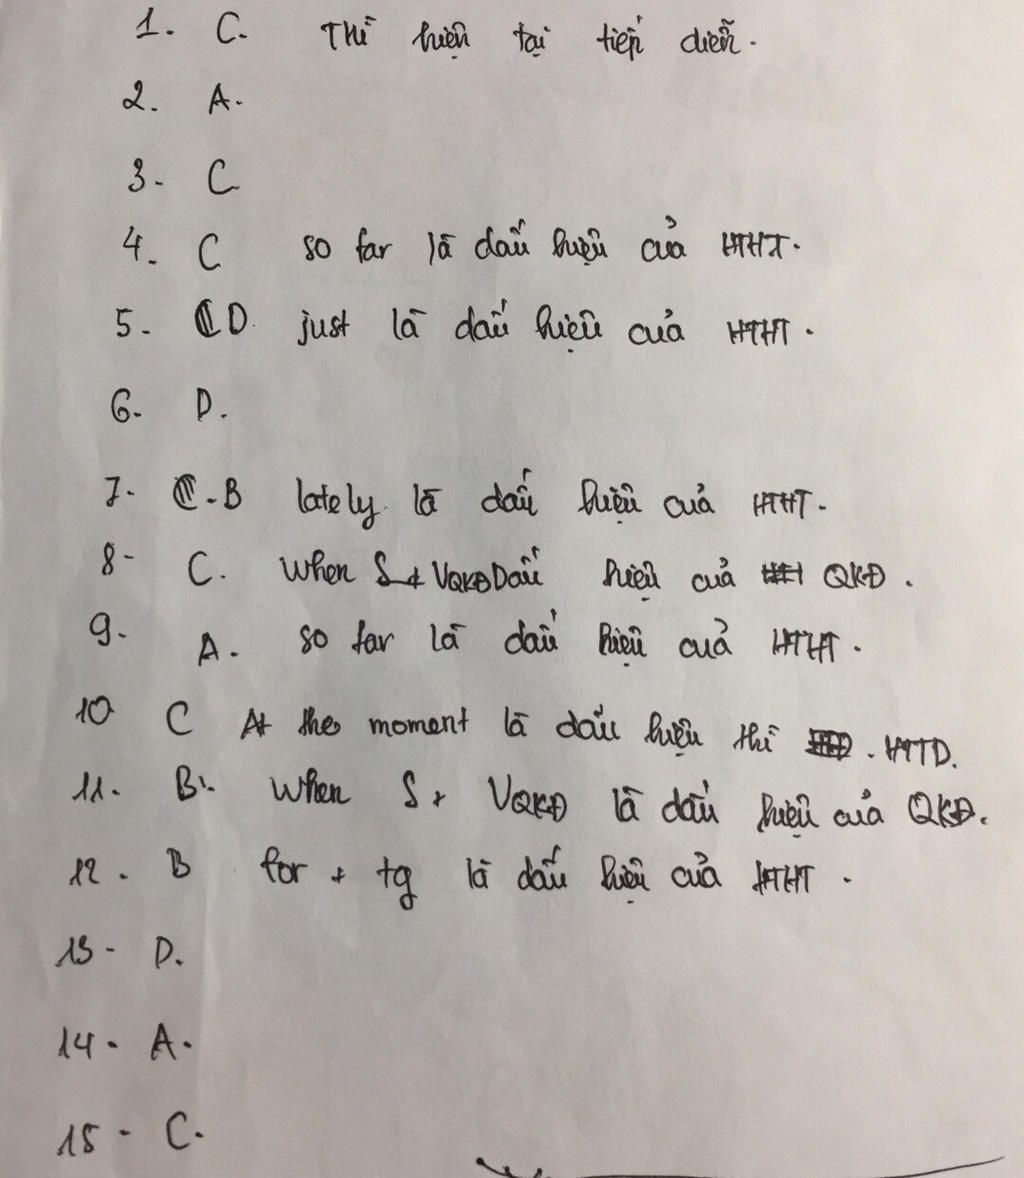 1. C. Thì hiện tại tiếp diễn.
2. A.
3. C
4. C so far là dấu hiệu của HTHT.
5. D. just là dấu hiệu của HTHT.
6. D.
7. B lately là dấu hiệu của HTHT.
8. C. When S + VQKĐ Dấu hiệu của QKĐ.
9. A. so far là dấu hiệu của HTHT.
10 C At the moment là dấu hiệu thì HTTD.
11. B. When S + VQKĐ là dấu hiệu của QKĐ.
12. B for + tg là dấu hiệu của HTHT.
13. D.
14. A.
15. C.